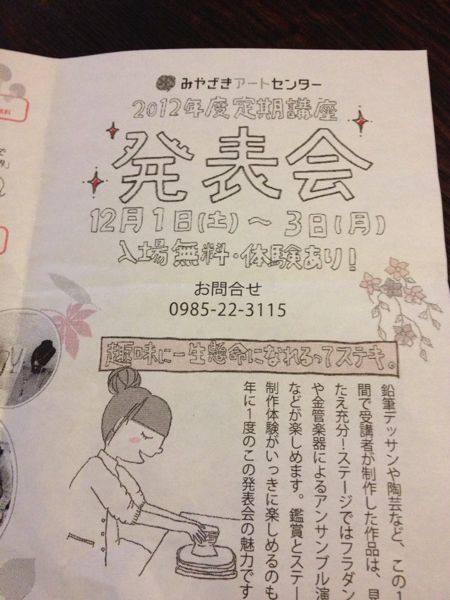 みやざきアートセンター
2012年度定期講座
発表会
12月1日(土)～3日(月)
入場無料・体験あり!
お問合せ
0985-22-3115
趣味に一生懸命になれるってステキ。
鉛筆デッサンや陶芸など、この1
間で受講者が制作した作品は、見
たえ充分!ステージではフラダン
や金管楽器によるアンサンブル演
などが楽しめます。鑑賞とステー
制作体験がいっきに楽しめるのも
年に1度のこの発表会の魅力です